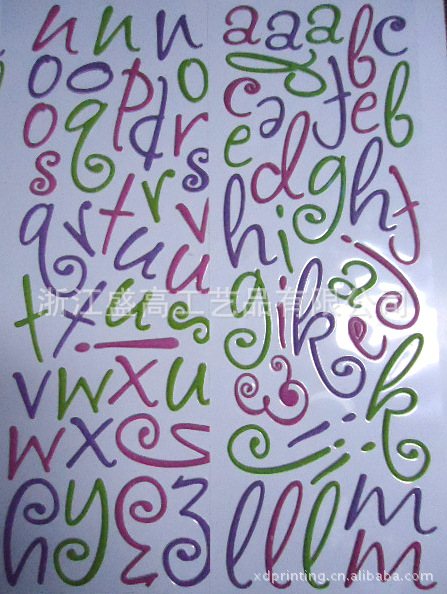 n n n
o o p o
o q d r
s t r s
q r t u v
u
t x u s
v w x u
w x
y
a a a b c
c a f e b
e d g h
h i g h t
g i k a j
e
k
l l l m
m
浙江盛高工艺品有限公司
xdprinting.cn.alibaba.com